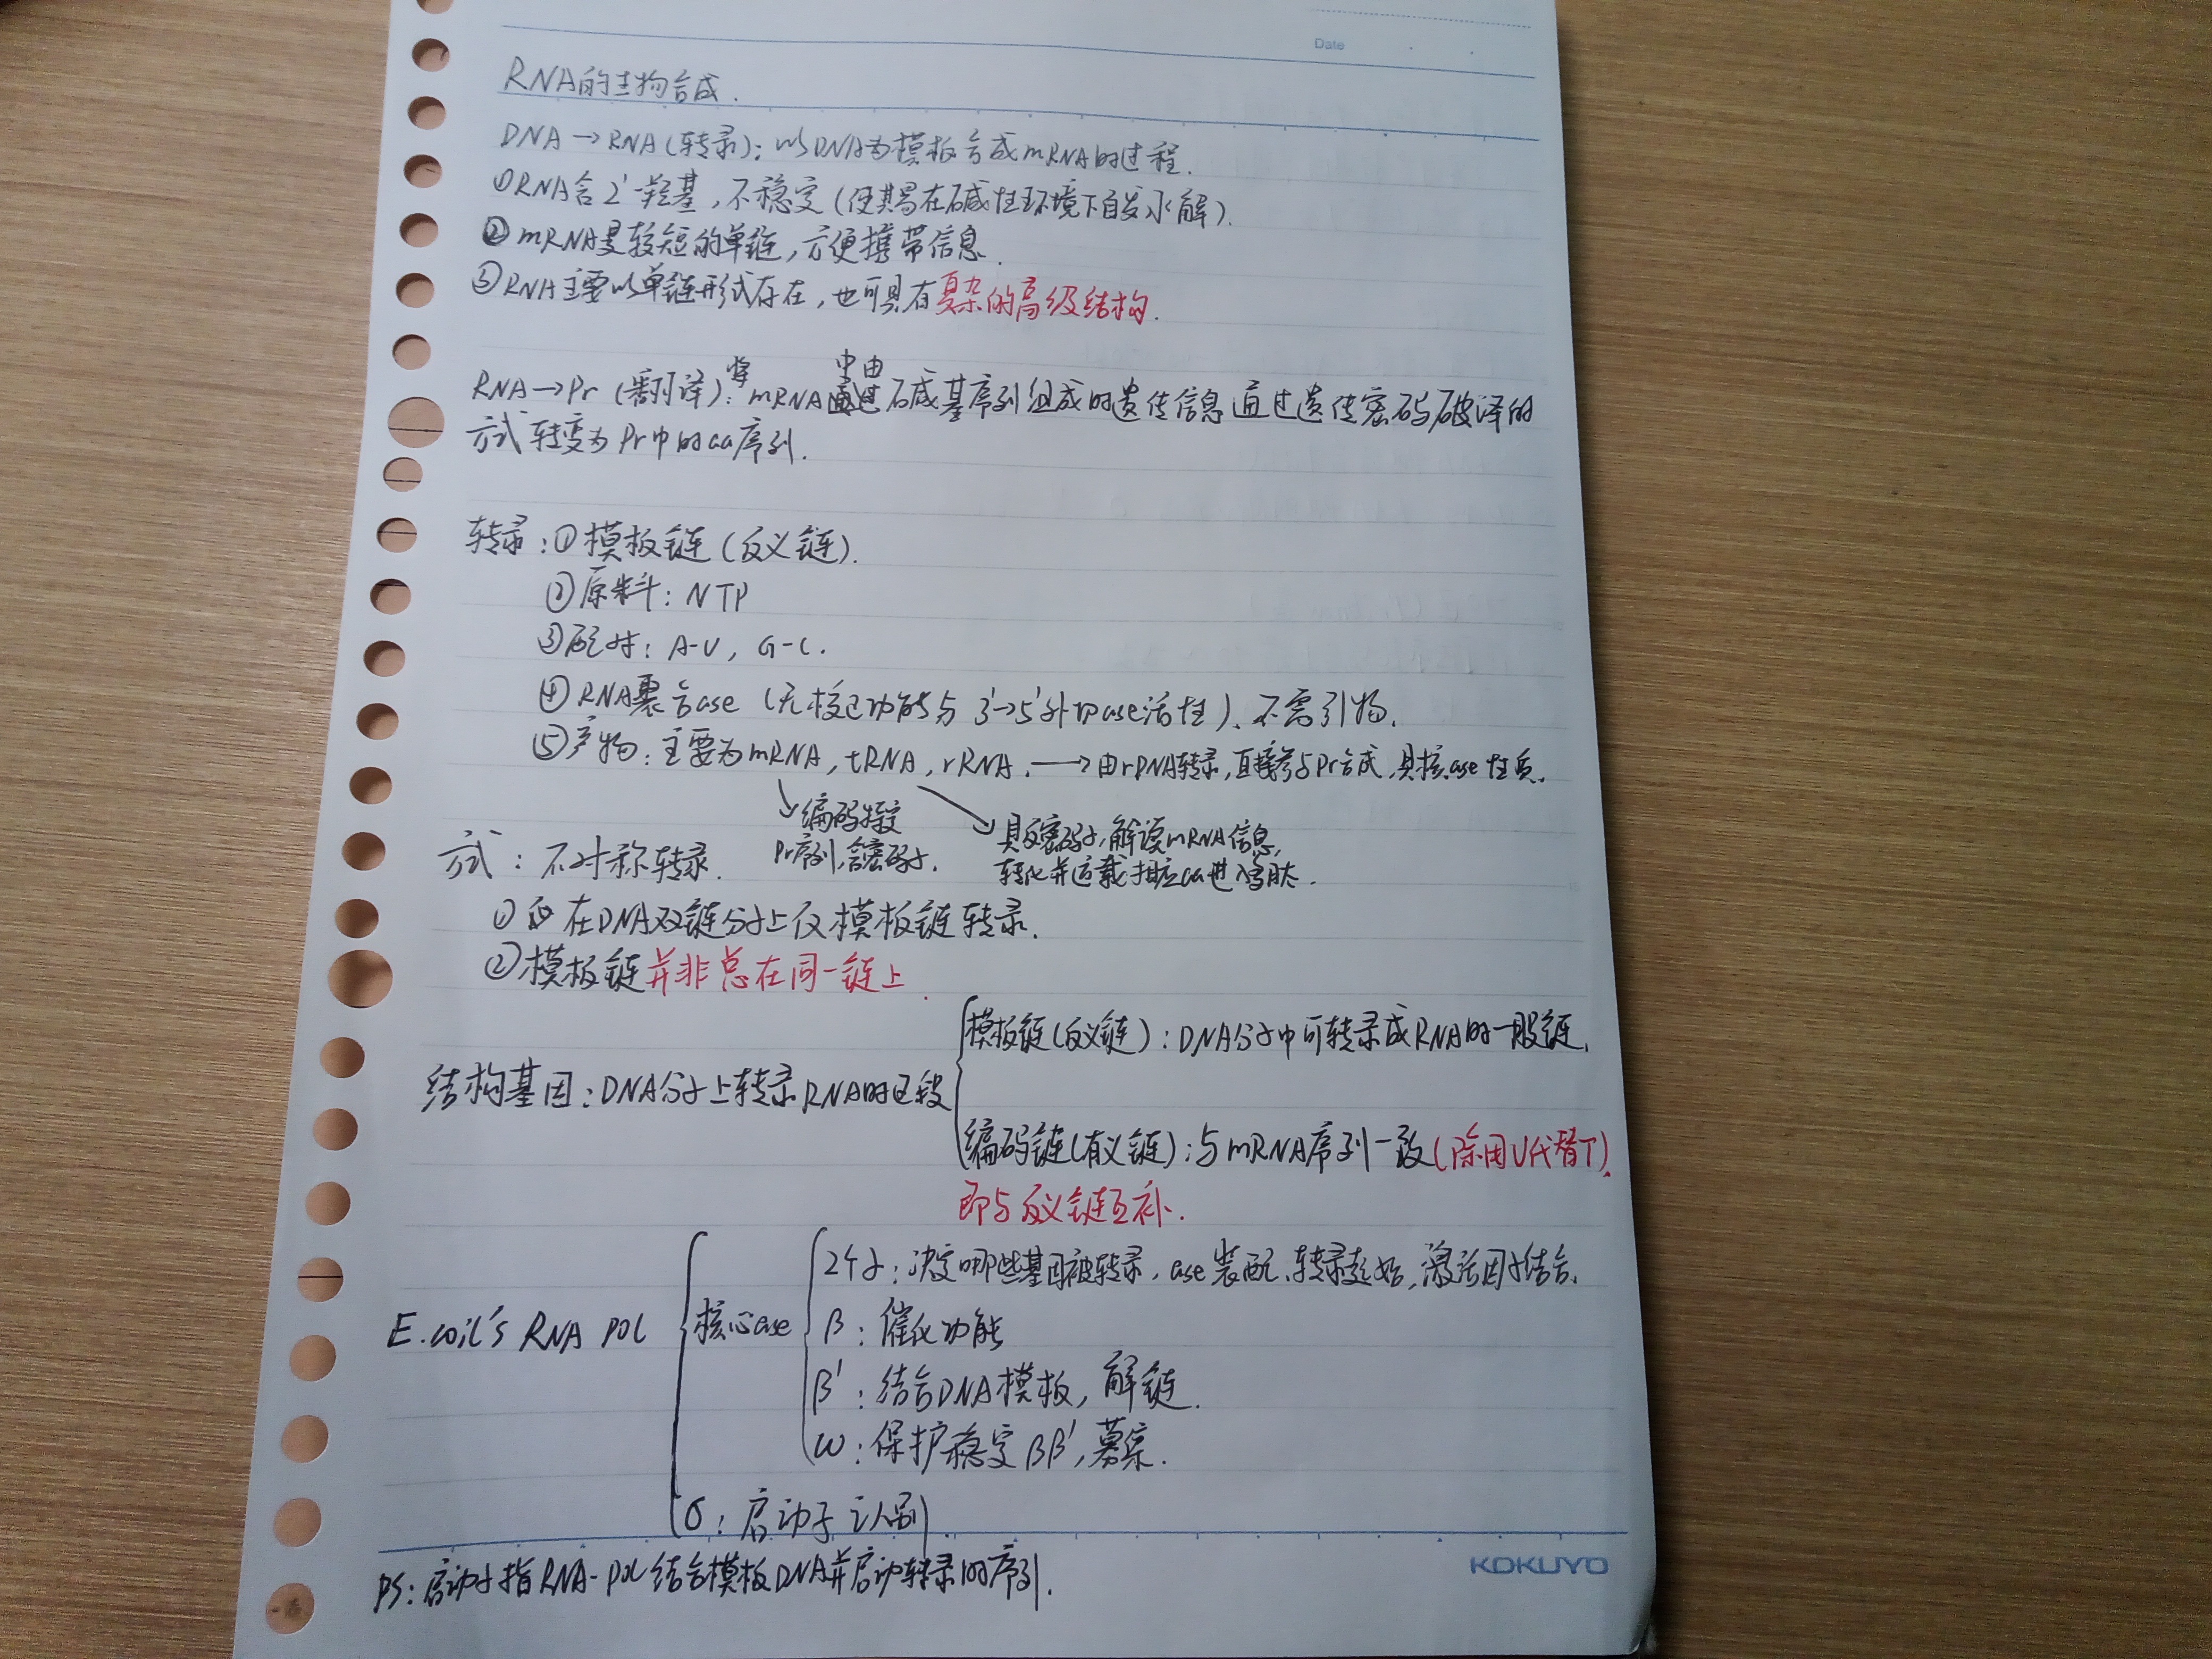 Date
RNA的生物合成.
DNA→RNA(转录): 以DNA为模板合成mRNA的过程.
①RNA含2'-羟基, 不稳定(使其易在碱性环境下自发水解).
②mRNA是较短的单链, 方便携带信息.
③RNA主要以单链形式存在, 也可具有复杂的高级结构.
RNA→Pr (翻译): 将mRNA中由碱基序列组成的遗传信息通过遗传密码破译的
方式转变为Pr中的aa序列.
转录: ①模板链(反义链).
②原料: NTP
③配对: A-U, G-C.
④RNA聚合ase (无核心功能与3'→5'外切ase活性). 不需引物.
⑤产物: 主要为mRNA, tRNA, rRNA. → 由rDNA转录, 直接参与Pr合成, 具核ase性质.
编码特定
Pr序列, 含密码子.
具反密码子, 解读mRNA信息,
转化并运载相应aa进入多肽.
方式: 不对称转录.
① 在DNA双链分子上仅模板链转录.
②模板链并非总在同一链上.
结构基因: DNA分子上转录RNA的区段
模板链(反义链): DNA分子中可转录成RNA的一股链.
编码链(有义链): 与mRNA序列一致(除用U代替T).
即与反义链互补.
E.coil's RNA POL
核心ase
2个α: 决定哪些基因被转录, ase装配, 转录起始, 激活因子结合.
β: 催化功能
β': 结合DNA模板, 解链.
ω: 保护稳定ββ', 募集.
σ: 启动子认别.
PS: 启动子指RNA-POL结合模板DNA并启动转录的序列.
KOKUYO